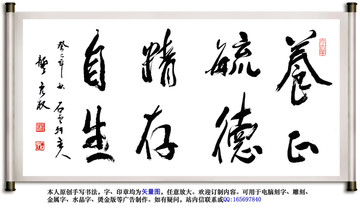 養正
毓德
精存
自生
本人原创手写书法，字、印章均为矢量图。任意放大、欢迎订制内容，可用于电脑刻字、雕刻、
金属字、水晶字、烫金版等广告制作，如有疑问，站内信联系或QQ:165697840